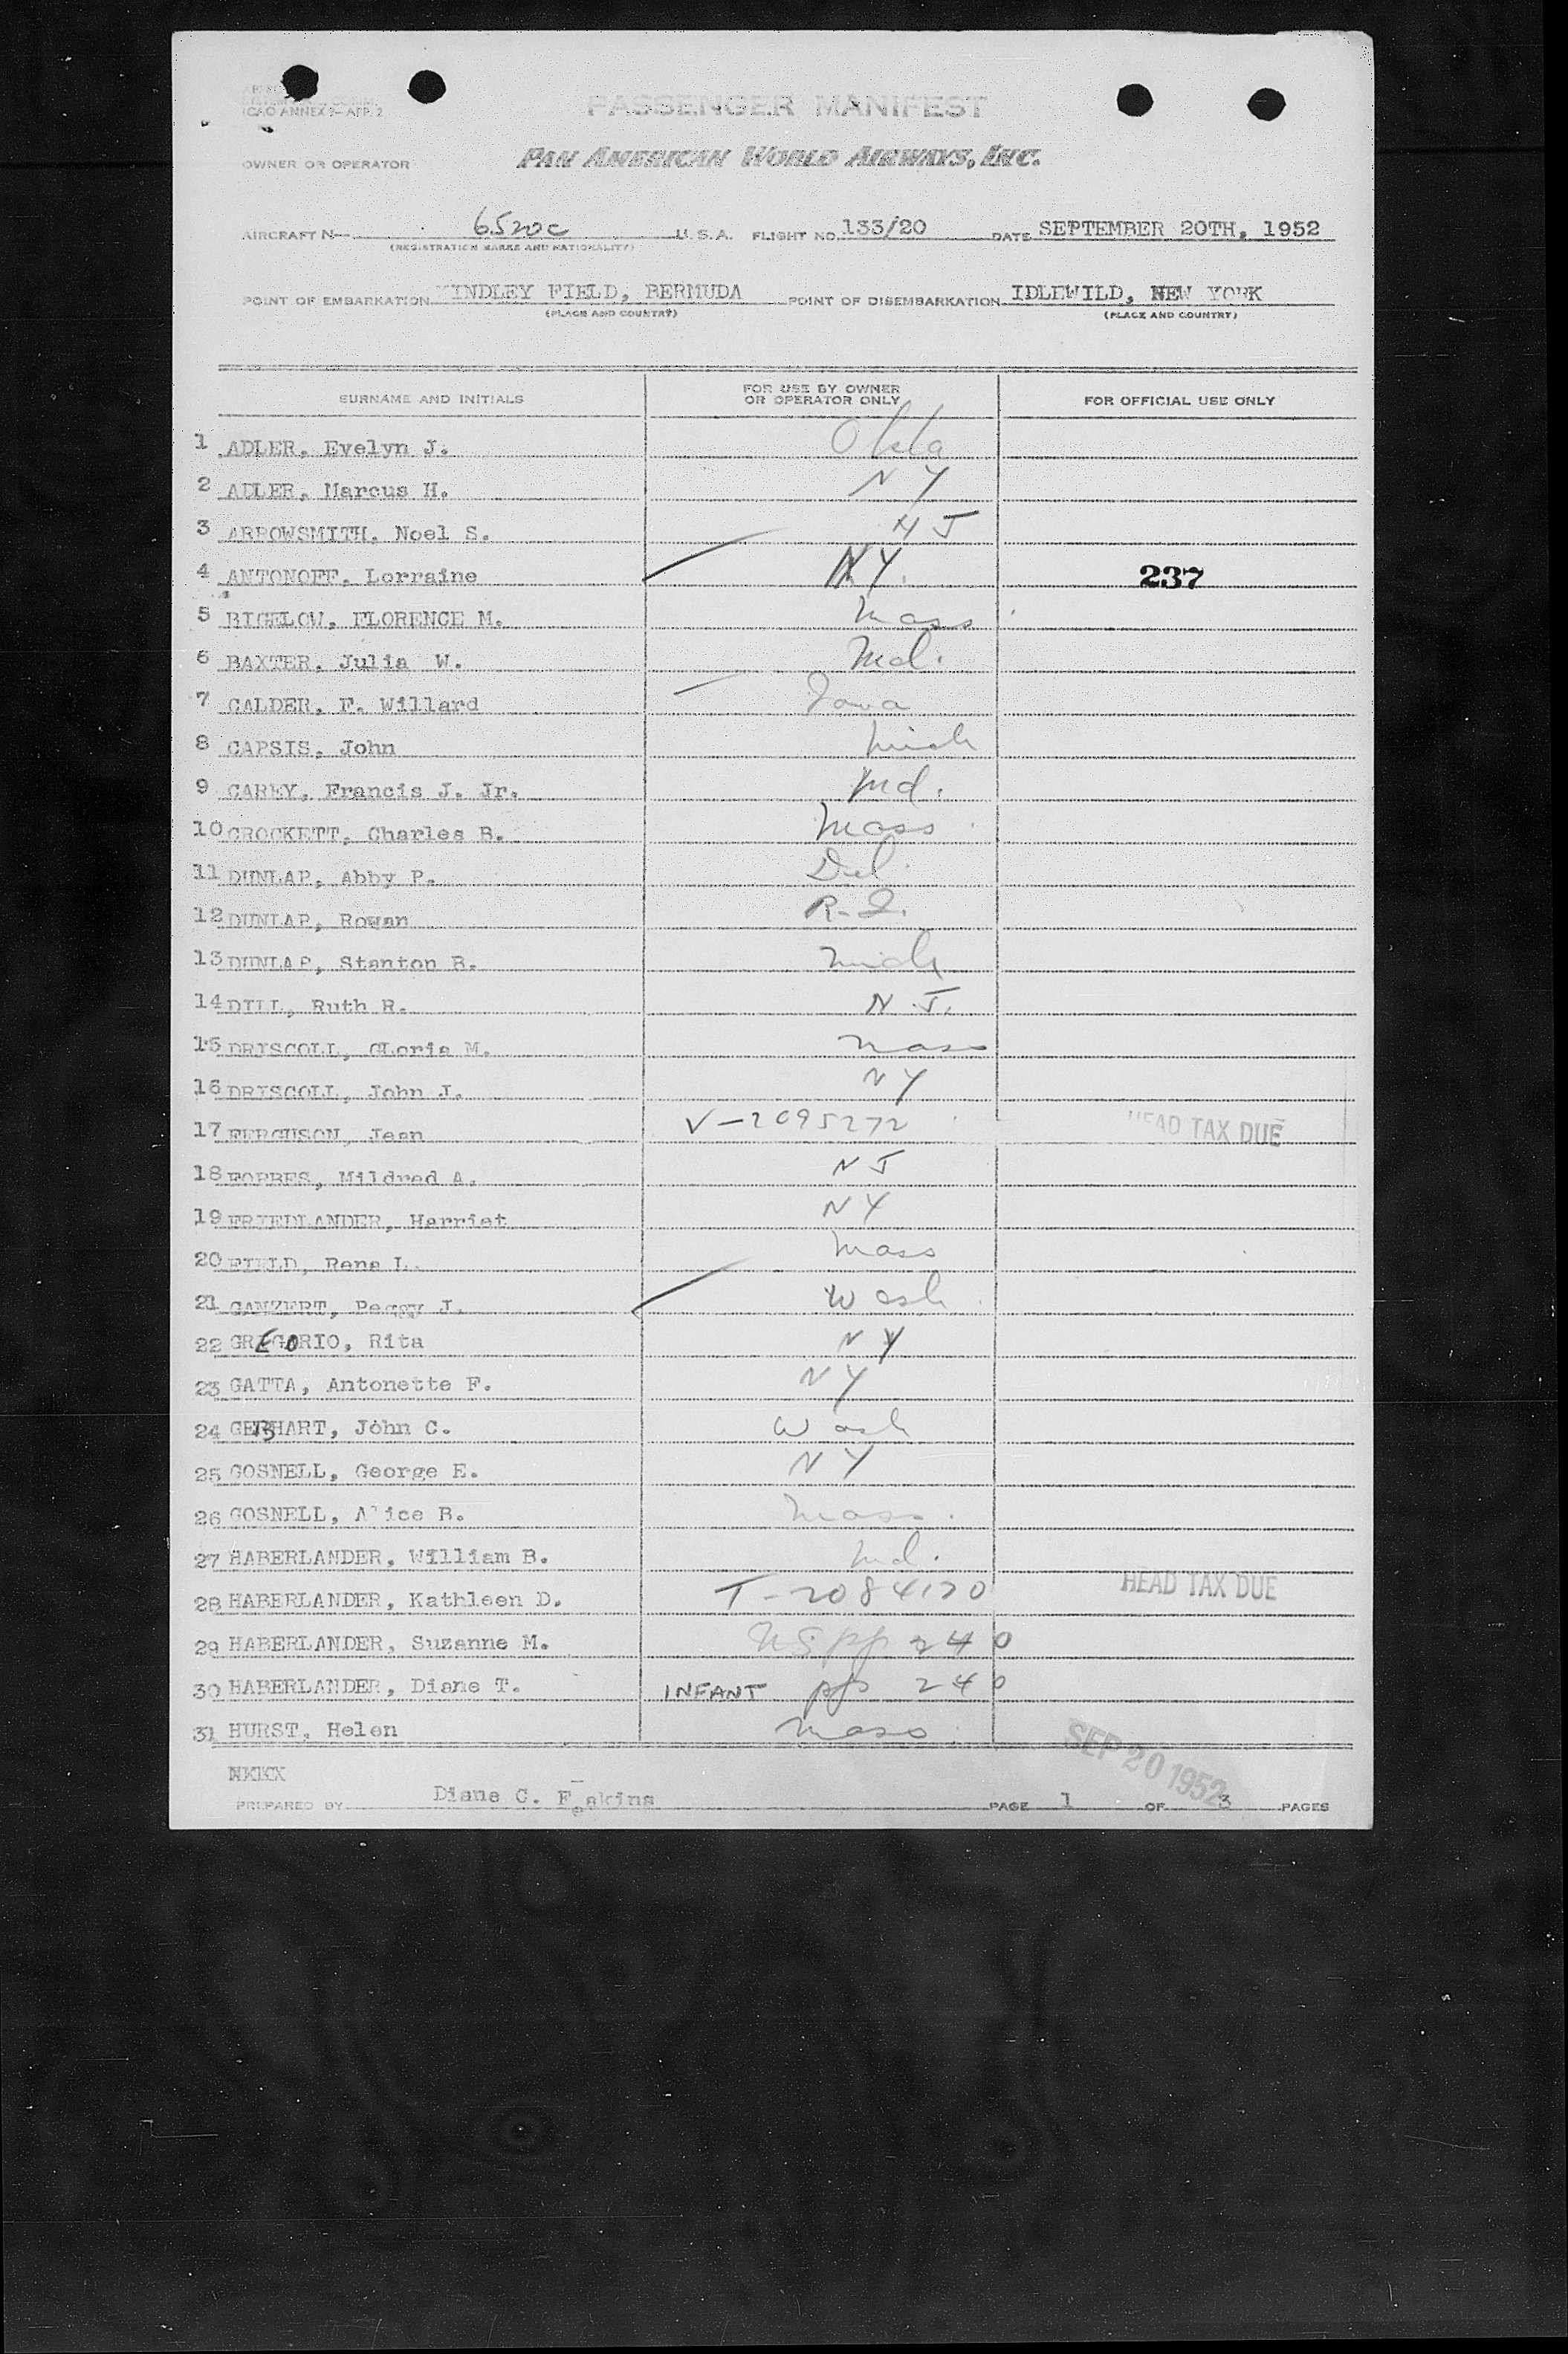 ICAO ANNEX 9—APP. 2
PASSENGER MANIFEST
OWNER OR OPERATOR PAN AMERICAN WORLD AIRWAYS, INC.
AIRCRAFT N— 6520C U. S. A. FLIGHT NO. 133/20 DATE SEPTEMBER 20TH, 1952
(REGISTRATION MARKS AND NATIONALITY)
POINT OF EMBARKATION KINDLEY FIELD, BERMUDA POINT OF DISEMBARKATION IDLEWILD, NEW YORK
(PLACE AND COUNTRY) (PLACE AND COUNTRY)
SURNAME AND INITIALS FOR USE BY OWNER OR OPERATOR ONLY FOR OFFICIAL USE ONLY
1 ADLER, Evelyn J. Okla
2 ADLER, Marcus H. NY
3 ARROWSMITH, Noel S. NJ
4 ANTONOFF, Lorraine NY. 237
5 BIGELOW, FLORENCE M. Mass
6 BAXTER, Julia W. Md.
7 CALDER, F. Willard Iowa
8 CAPSIS, John Mich
9 CAREY, Francis J. Jr. Md.
10 CROCKETT, Charles B. Mass
11 DUNLAP, Abby P. Del
12 DUNLAP, Rowan R.I.
13 DUNLAP, Stanton B. Mich
14 DILL, Ruth R. N.J.
15 DRISCOLL, GLoria M. Mass
16 DRISCOLL, John J. NY
17 FERGUSON, Jean V-2095272 HEAD TAX DUE
18 FORBES, Mildred A. NJ
19 FRIEDLANDER, Harriet NY
20 FIELD, Rena L. Mass
21 GANZERT, Peggy J. Wash
22 GREGORIO, Rita NY
23 GATTA, Antonette F. NY
24 GEBHART, John C. Wash
25 GOSNELL, George E. NY
26 GOSNELL, Alice B. Mass.
27 HABERLANDER, William B. Md.
28 HABERLANDER, Kathleen D. T-2084120 HEAD TAX DUE
29 HABERLANDER, Suzanne M. US pp 240
30 HABERLANDER, Diane T. INFANT pp 240
31 HURST, Helen Mass.
SEP 20 1952
PREPARED BY Diane C. Eeakins PAGE 1 OF 3 PAGES